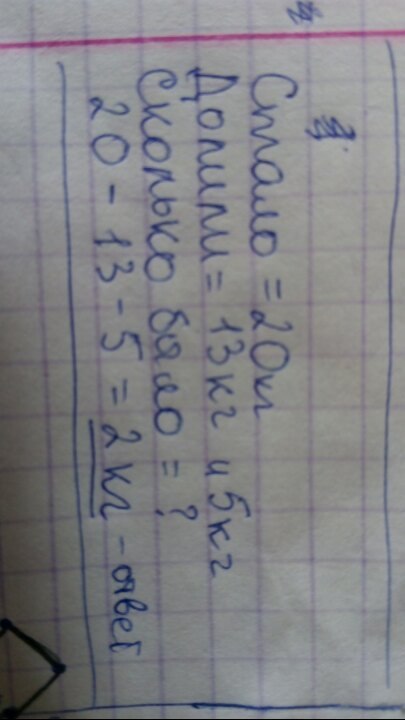 Стало = 20кг
Долили = 13кг и 5кг
Сколько было = ?
20 - 13 - 5 = 2кг - ответ